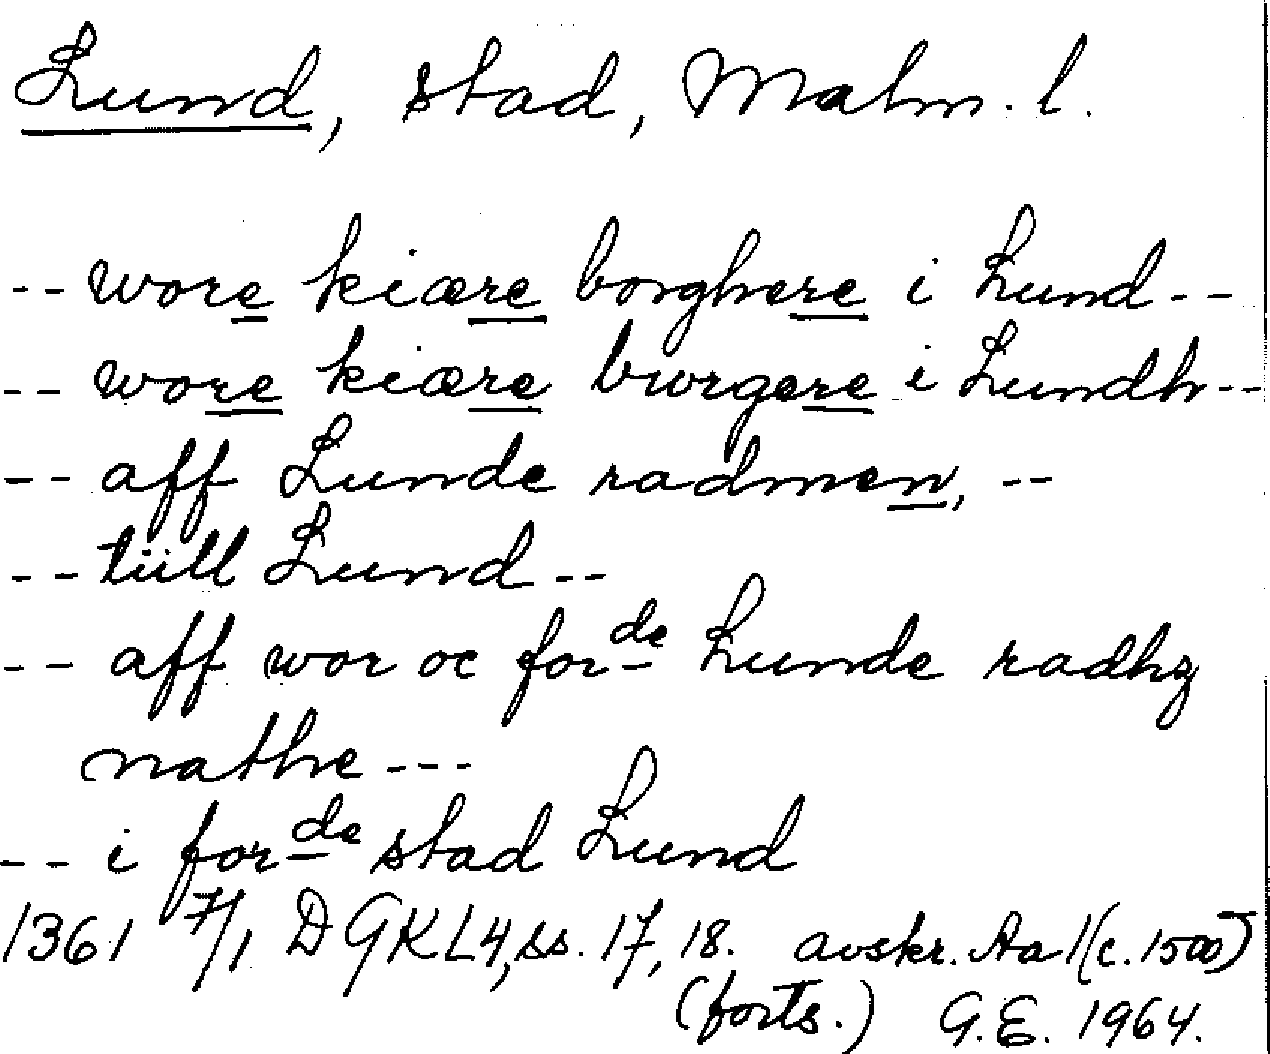 Lund, stad, Malm. l.
-- wore kiære borghere i Lund --
-- wore kiære bwrgere i Lundh --
-- aff Lunde radmen, --
-- tiill Lund --
-- aff wor oc forde Lunde radhz
nathe ---
-- i forde stad Lund
1361 7/1, DGKL4, ss. 17, 18. avskr. Aa 1 (c. 1500)
(forts.) G.E. 1964.